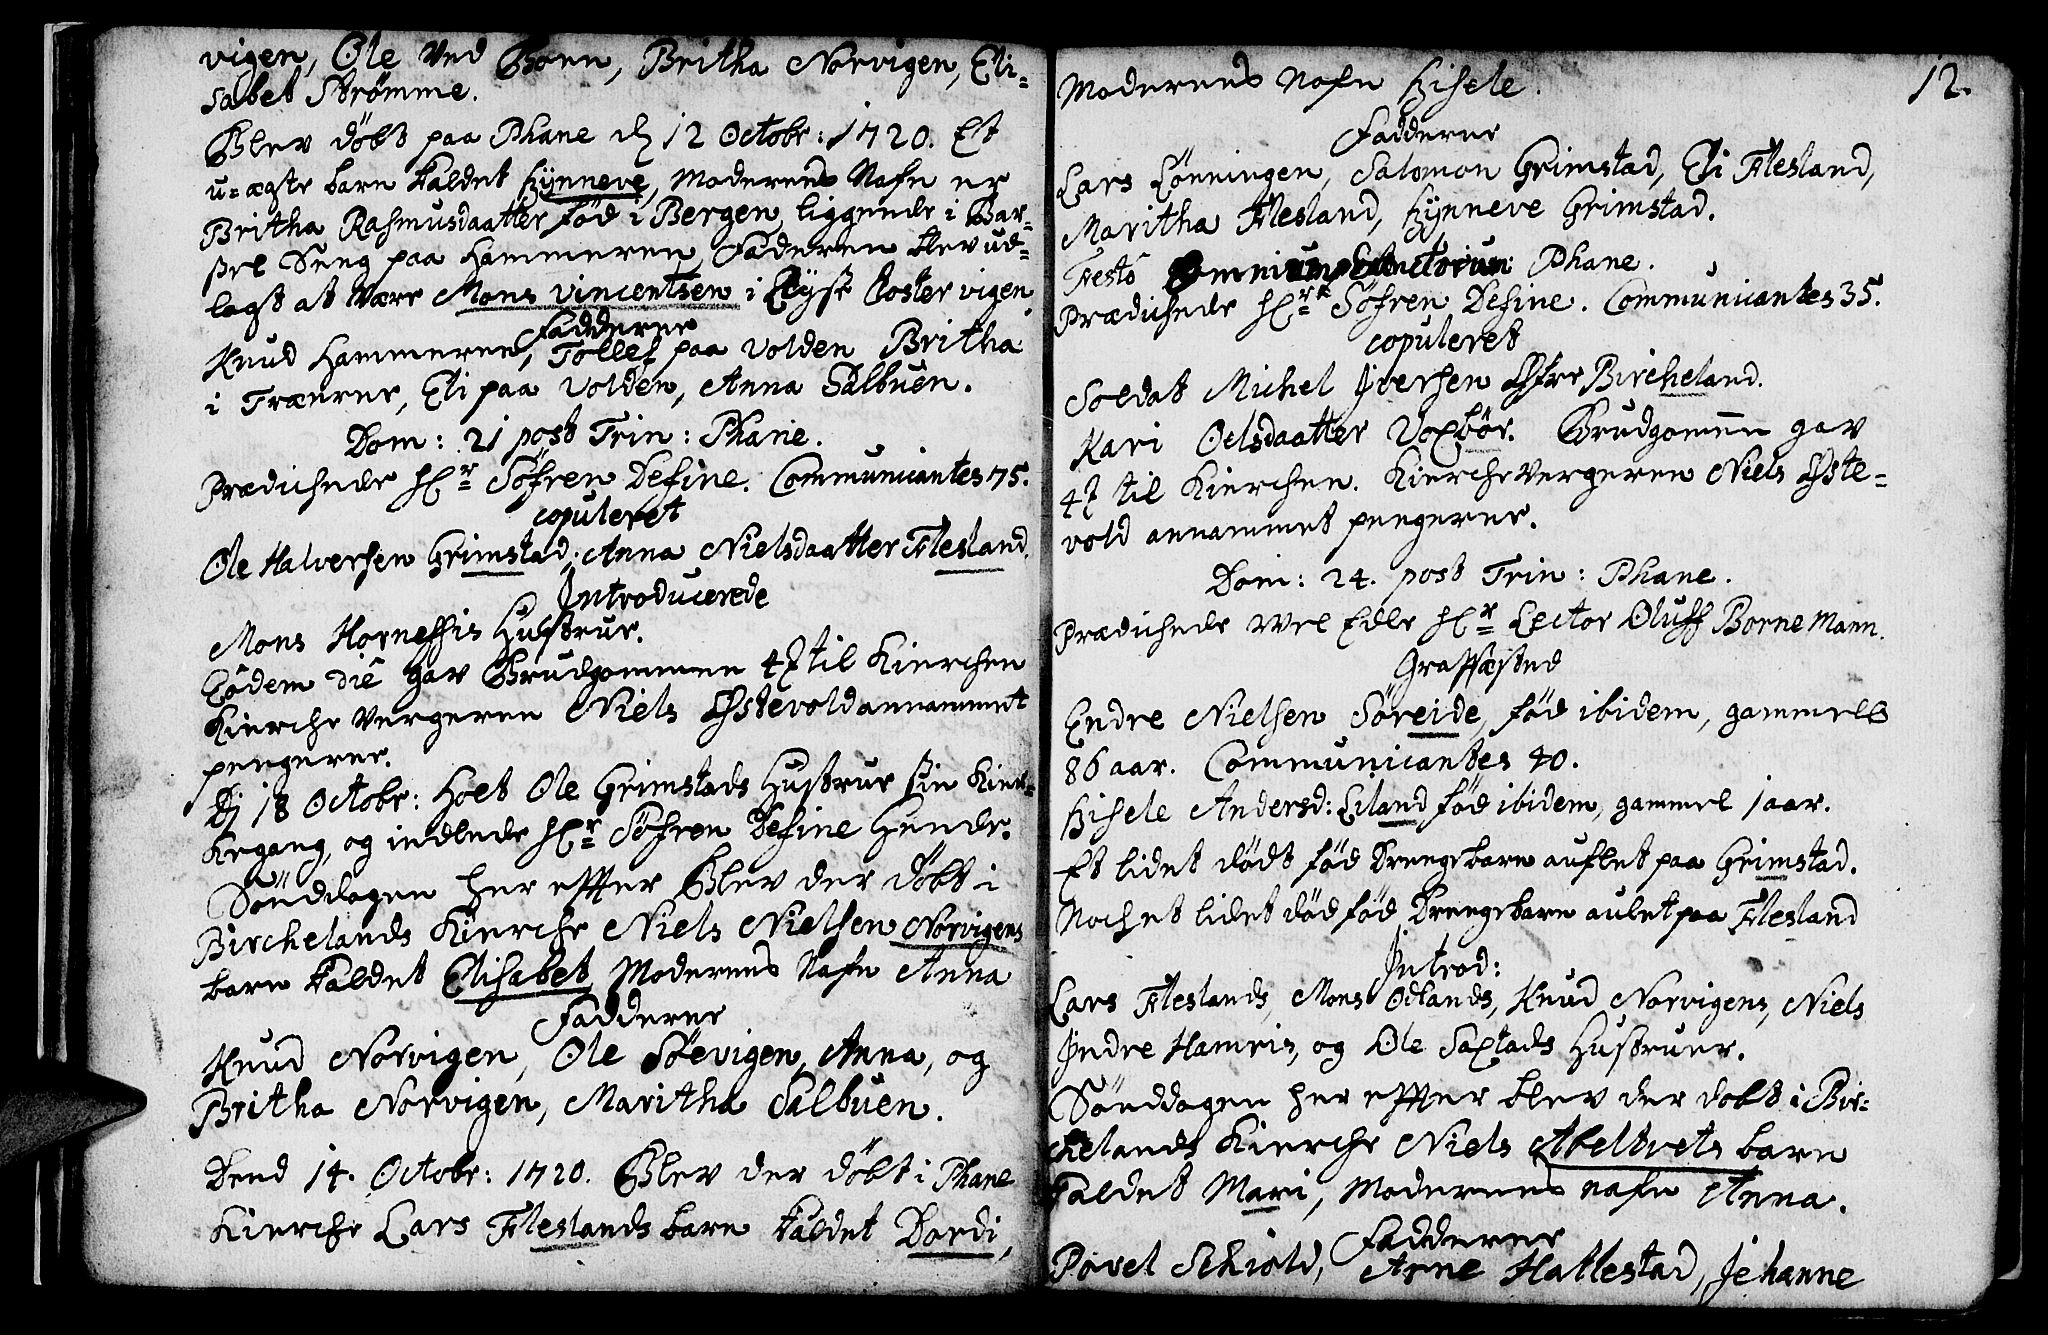 vigen, Ole ved Søen, Britha Norvigen, Eli=
sabet Strømme.
Blev döbt paa Phane d 12 Octobr: 1720. Et
u=ægte barn kaldet Synneve, Moderens Nafn er
Britha Rasmusdaatter fød i Bergen, liggende i Bar=
sel Seng paa Hammeren, Faderen blev ud=
lagt at være Mons Vincentsen i Lyse Closter vigen
Fadderne
Knud Hammeren, Tollef paa Volden Britha
i Træerne, Eli paa Volden, Anna Sælbuen.
Dom: 21 post Trin: Phane.
Prædichede Hr Söfren Define. Communicantes 75.
copuleret
Ole Halversen Grimstad, Anna Nielsdaatter Flesland.
Introducerede
Mons Horneffis Hustrue.
Eödem die gav Brudgommen 4 til Kierchen
Kierche Vergeren Niels Østevold annammet
pengerne.
D 18 Octobr: holt Ole Grimstads Hustrue sin Kier=
kegang, og indlede Hr Söfren Define hende.
Sönddagen her effter Blev der döbt i
Birchelands Kierche Niels Nielsen Norvigens
barn kaldet Elisabet, Moderens Nafn Anna
Fadderne
Knud Norvigen, Ole Söevigen, Anna, og
Britha Norvigen, Maritha Sælbuen.
Dend 14. Octobr: 1720. Blev der döbt i Phane
Kierche Lars Fleslands barn kaldet Dordi,
12.
Moderens Nafn Sisele.
Fadderne
Lars Lönningen, Salomon Grimstad, Eli Flesland,
Maritha Flesland, Synneve Grimstad.
Festo Omnium Sanctorum Phane.
Prædichede Hr Söfren Define. Communicantes 35.
copuleret
Soldat Michel Iversen Øfre Bircheland.
Kari Oelsdaatter Voxbör. Brudgomen gav
4 til Kierchen. Kierche Vergeren Niels Øste=
vold annammet pengerne.
Dom: 24. post Trin: Phane.
Prædichede Vel Edle Hr Lector Oluff Borne Mann.
Graffæsted
Endre Nielsen Söreide, fød ibidem, gammel
86 aar. Communicantes 40.
Sisele Andersd: Liland, fød ibidem, gammel 1 aar.
Et lidet dödt fød Drengebarn auflet paa Grimstad.
Noch et lidet död fød Drengebarn aulet paa Flesland
Introd:
Lars Fleslands, Mons Ödlands, Knud Norvigens, Niels
Indre Hamris, og Ole Saxtads Hustruer.
Sönddagen her effter blev der dobt i Bir=
kelands Kierche Niels Apeltvets barn
kaldet Mari, Moderens nafn Anna.
Fadderne
Povel Schiold, Arne Hattestad, Jehanne